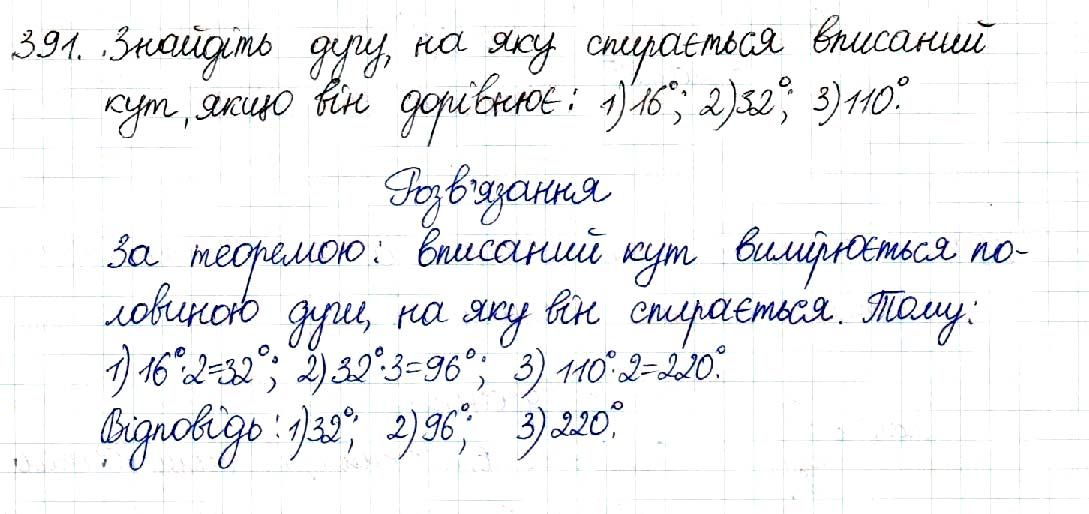 391. Знайдіть дугу, на яку спирається вписаний
кут, якщо він дорівнює: 1) 16°; 2) 32°; 3) 110°.
Розв'язання
За теоремою: вписаний кут вимірюється по-
ловиною дуги, на яку він спирається. Тому:
1) 16°·2=32°; 2) 32°·3=96°; 3) 110°·2=220°.
Відповідь: 1) 32°; 2) 96°; 3) 220°.